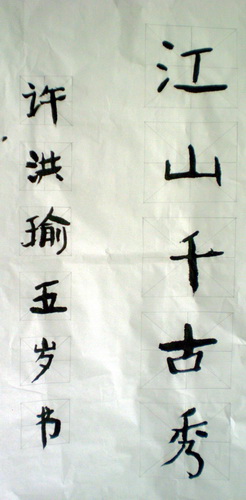 江山千古秀
许洪瑜五岁书